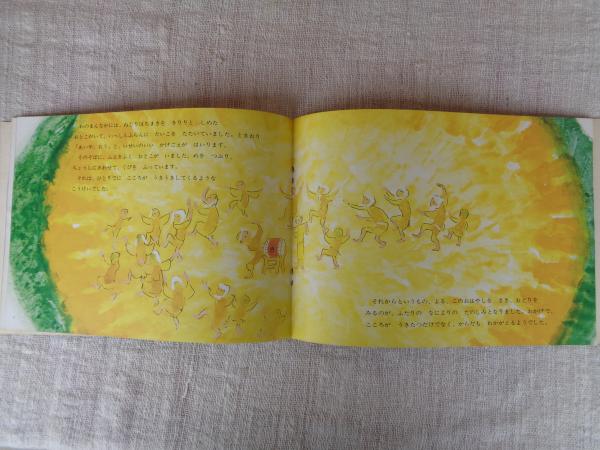 わのまんなかには、ねじりはちまきを きりりと しめた
おとこがいて、いっしんふらんに たいこを たたいていました。ときおり
「あいや、おう」と、いせいのいい かけごえが はいります。
そのそばに、ふえをふく おとこが いました。めを つぶり、
ちょうしにあわせて、くびを ふっています。
それは、ひとりでに こころが うきうきしてくるような
こうけいでした。
それからというもの、よる、このおはやしを きき、おどりを
みるのが、ふたりの なによりの たのしみとなりました。おかげで、
こころが うきたつだけでなく、からだも わかがえるようでした。